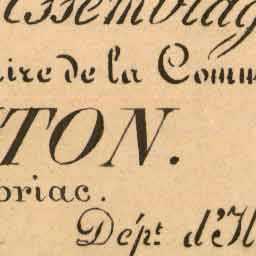 Assemblag
aire de la Comm
TON.
briac.
Dépt. d'Il